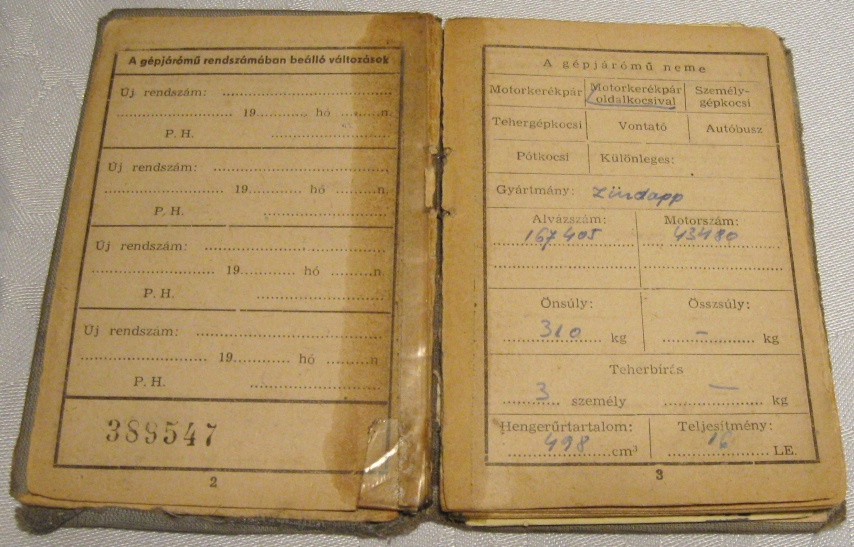 A gépjárómű rendszámában beálló változások
Új rendszám:
19 hó n.
P. H.
Új rendszám:
19 hó n.
P. H.
Új rendszám:
19 hó n.
P. H.
Új rendszám:
19 hó n
P. H.
389547
2
A gépjárómű neme
Motorkerékpár Motorkerékpár oldalkocsival Személy-gépkocsi
Tehergépkocsi Vontató Autóbusz
Pótkocsi Különleges:
Gyártmány: Zündapp
Alvázszám: Motorszám:
167405 43480
Önsúly: Összsúly:
310 kg – kg
Teherbírás
3 személy — kg
Hengerűrtartalom: Teljesítmény:
498 cm³ 16 LE.
3